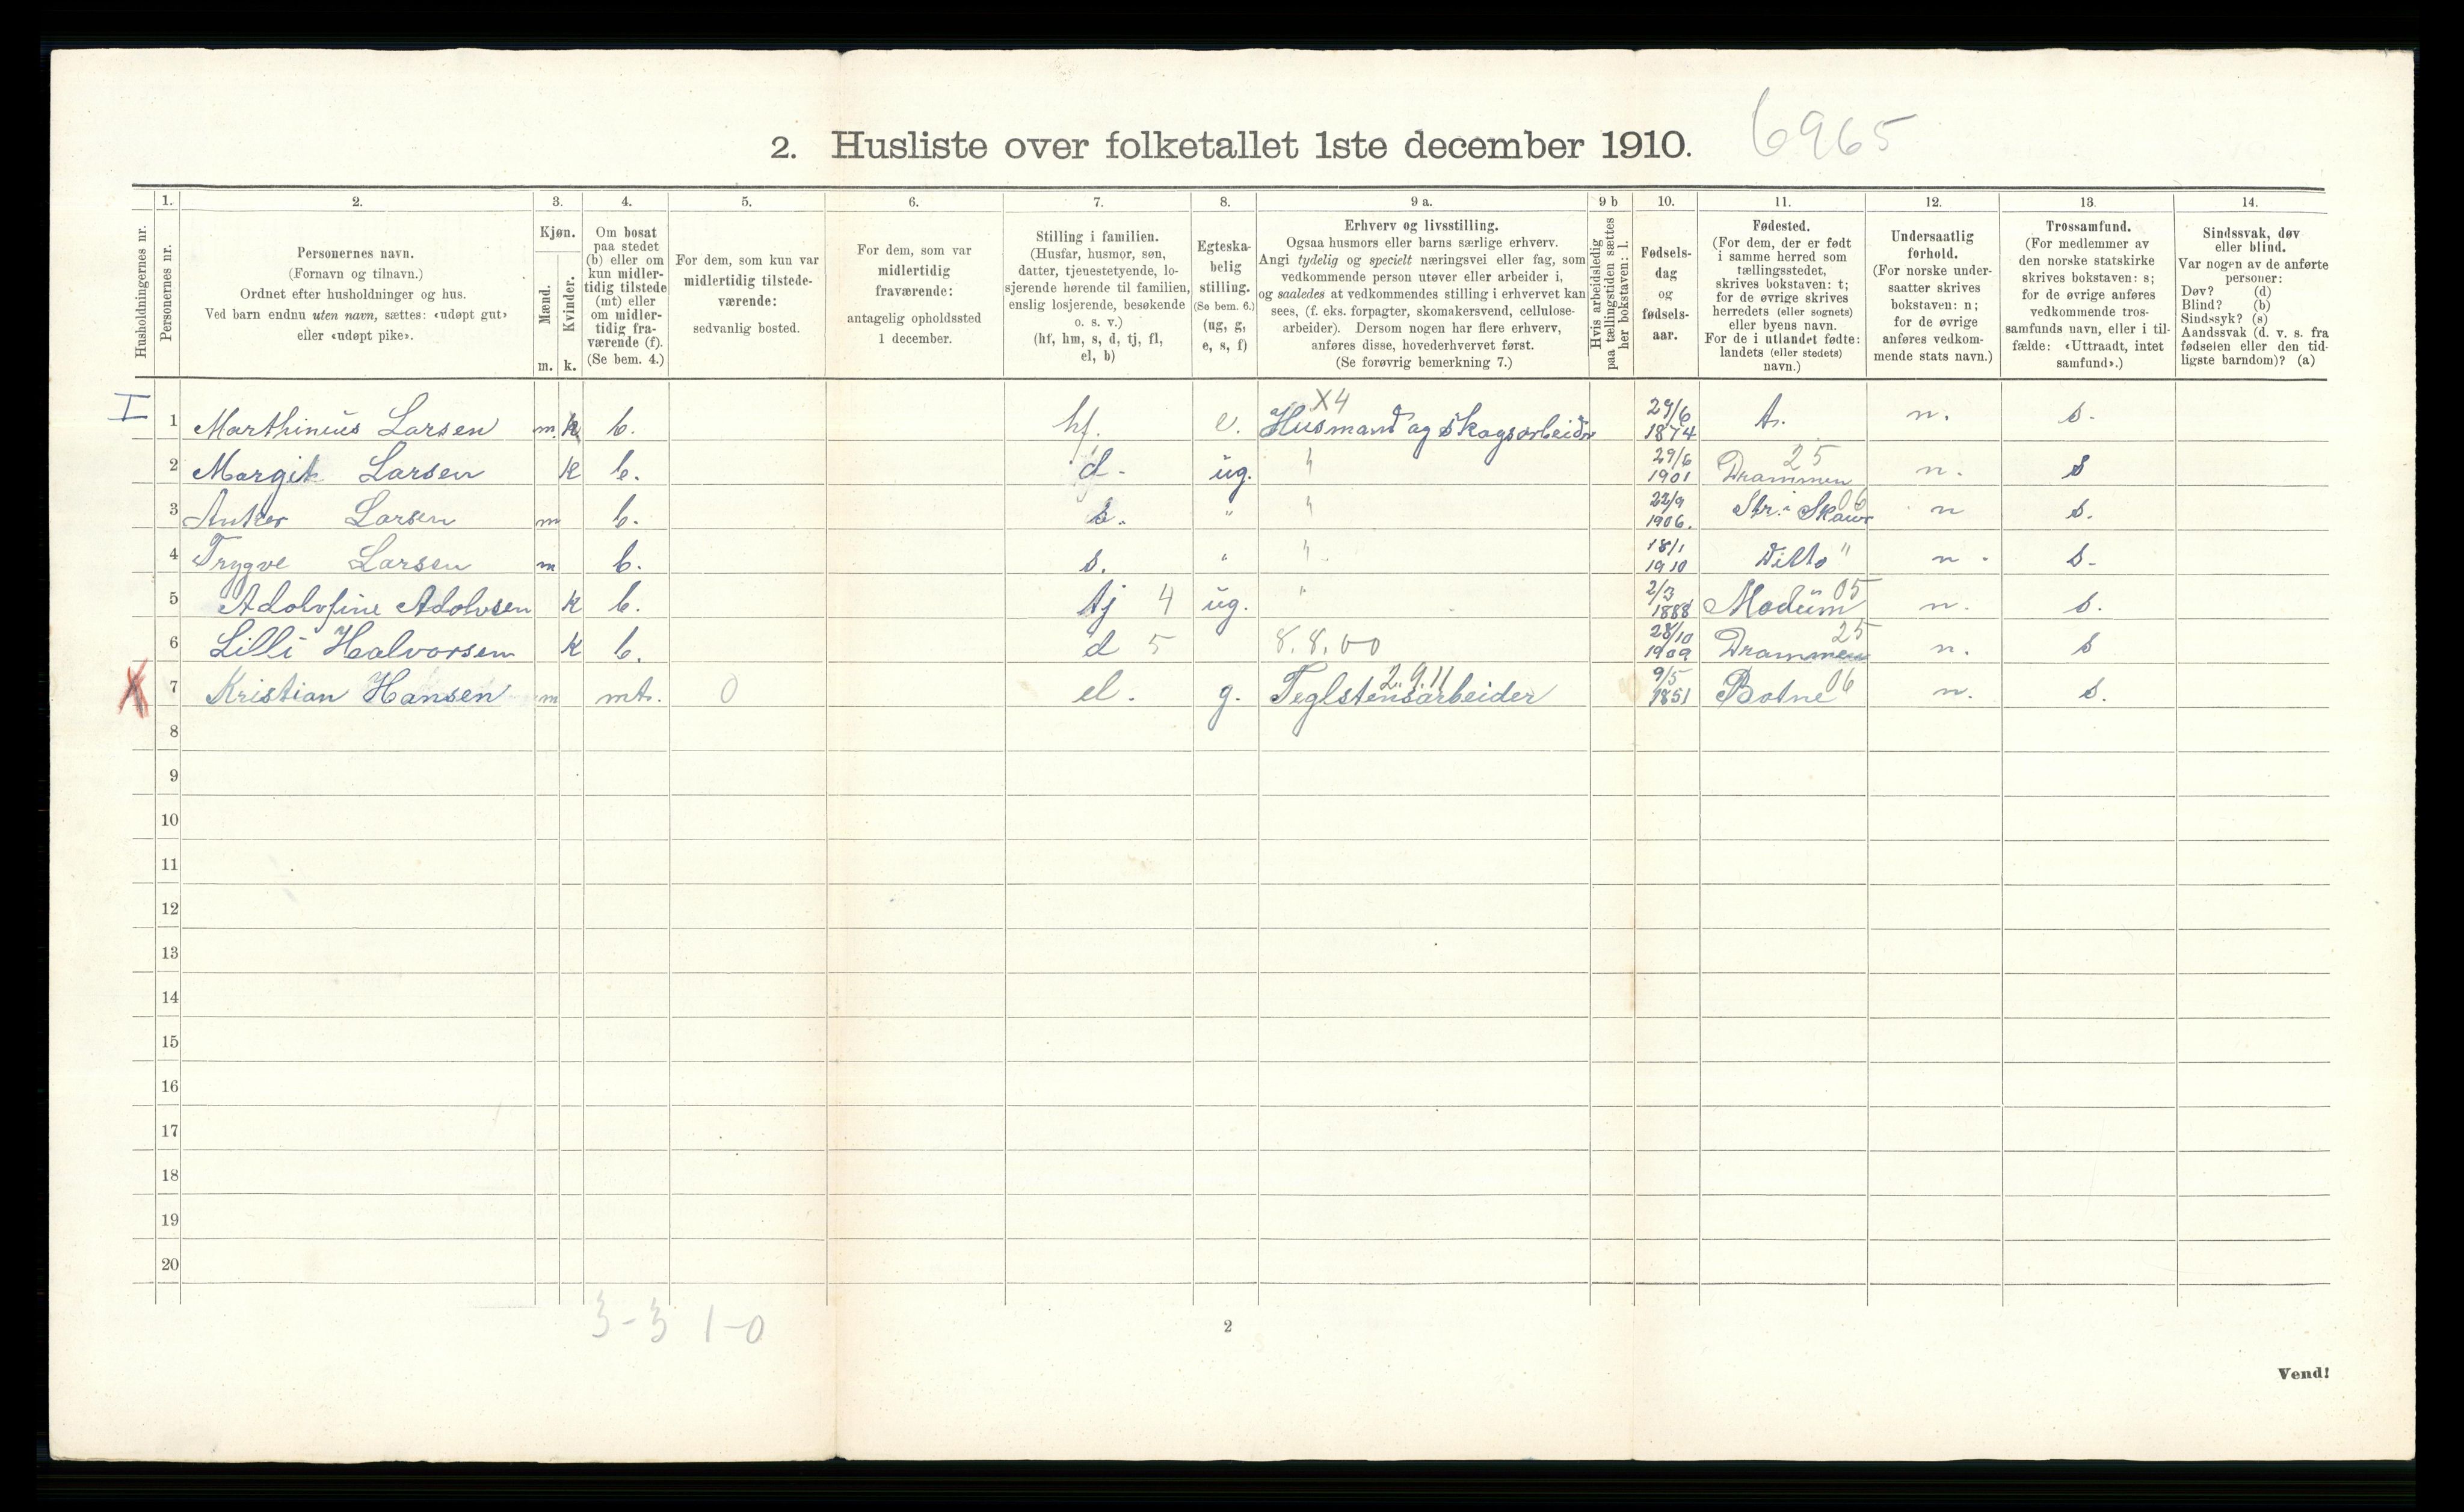 2. Husliste over folketallet 1ste december 1910. 6965
Husholdningernes nr.
1. Personernes nr.
2. Personernes navn.
(Fornavn og tilnavn.)
Ordnet efter husholdninger og hus.
Ved barn endnu uten navn, sættes: «udøpt gut»
eller «udøpt pike».
3. Kjøn.
Mænd. m.
Kvinder. k.
4. Om bosat
paa stedet
(b) eller om
kun midler-
tidig tilstede
(mt) eller
om midler-
tidig fra-
værende (f).
(Se bem. 4.)
5. For dem, som kun var
midlertidig tilstede-
værende:
sedvanlig bosted.
6. For dem, som var
midlertidig
fraværende:
antagelig opholdssted
1 december.
7. Stilling i familien.
(Husfar, husmor, søn,
datter, tjenestetyende, lo-
sjerende hørende til familien,
enslig losjerende, besøkende
o. s. v.)
(hf, hm, s, d, tj, fl,
el, b)
8. Egteska-
belig
stilling.
(Se bem. 6.)
(ug, g,
e, s, f)
9 a. Erhverv og livsstilling.
Ogsaa husmors eller barns særlige erhverv.
Angi tydelig og specielt næringsvei eller fag, som
vedkommende person utøver eller arbeider i,
og saaledes at vedkommendes stilling i erhvervet kan
sees, (f. eks. forpagter, skomakersvend, cellulose-
arbeider). Dersom nogen har flere erhverv,
anføres disse, hovederhvervet først.
(Se forøvrig bemerkning 7.)
9 b Hvis arbeidsledig
paa tællingstiden sættes
her bokstaven: l.
10. Fødsels-
dag
og
fødsels-
aar.
11. Fødested.
(For dem, der er født
i samme herred som
tællingsstedet,
skrives bokstaven: t;
for de øvrige skrives
herredets (eller sognets)
eller byens navn.
For de i utlandet fødte:
landets (eller stedets)
navn.)
12. Undersaatlig
forhold.
(For norske under-
saatter skrives
bokstaven: n;
for de øvrige
anføres vedkom-
mende stats navn.)
13. Trossamfund.
(For medlemmer av
den norske statskirke
skrives bokstaven: s;
for de øvrige anføres
vedkommende tros-
samfunds navn, eller i til-
fælde: «Uttraadt, intet
samfund».)
14. Sindssvak, døv
eller blind.
Var nogen av de anførte
personer:
Døv? (d)
Blind? (b)
Sindssyk? (s)
Aandssvak (d. v. s. fra
fødselen eller den tid-
ligste barndom)? (a)
X4
I 1 Marthinius Larsen m. b. hf. e. Husmand og skogsarbeider 29/6 1874 t. n. s.
2 Margit Larsen k b. d. ug. " 29/6 1901 Drammen 25 n. s
3 Anker Larsen m b. s. " " 22/9 1906. Str. i Skauv 06 n s.
4 Trygve Larsen m b. s. " " 18/1 1910 Ditto " n. s.
5 Adolvfine Adolvsen k b. tj 4 ug. " 2/3 1888 Modum 05 n. s.
6 Lilli Halvorsen k b. d 5 8.8.00 28/10 1909 Drammen 25 n. s
X 7 Kristian Hansen m mt. 0 el. g. Teglstensarbeider 2.9.11 9/5 1851 Botne 06 n. s.
8
9
10
11
12
13
14
15
16
17
18
19
20
3-3 1-0
2
Vend!